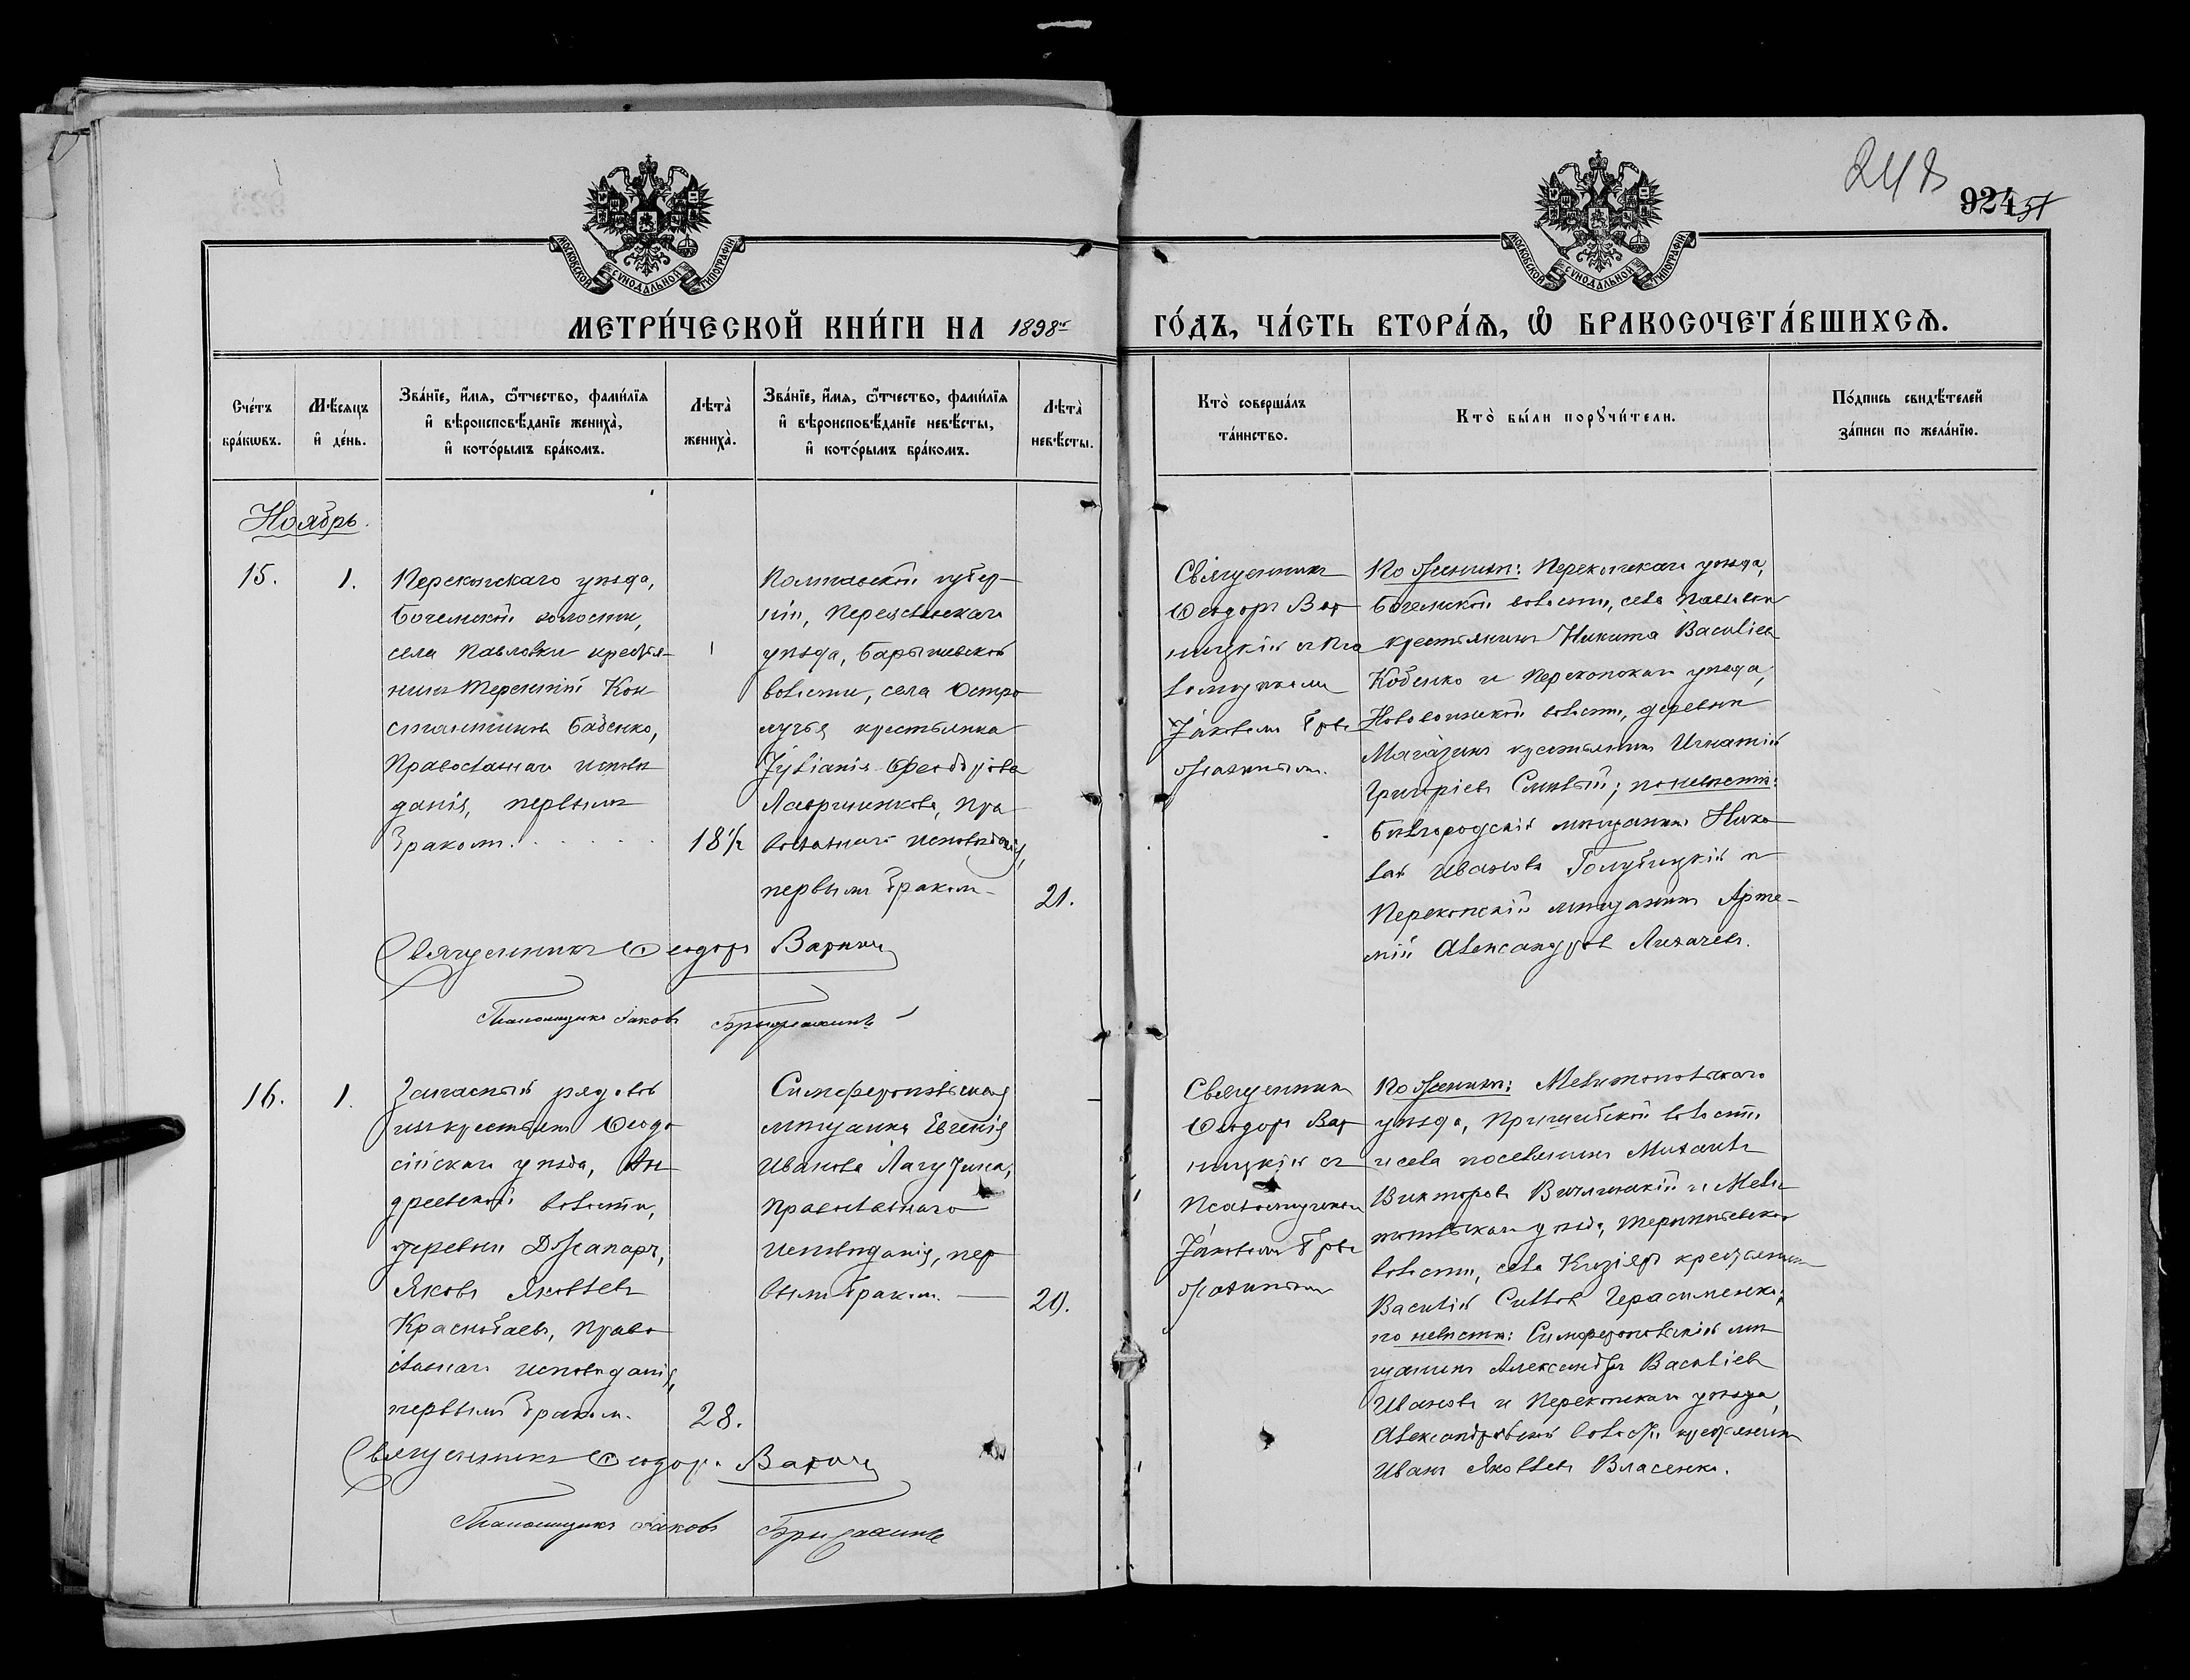 248
924
51
МОСКОВСКОЙ СѴНОДАЛЬНОЙ ТИПОГРАФІИ
МОСКОВСКОЙ СѴНОДАЛЬНОЙ ТИПОГРАФІИ
МЕТРИ́ЧЕСКОЙ КНИ́ГИ НА 1898й ГО́ДЪ, ЧА́СТЬ ВТОРА́Ѧ, Ѽ БРАКОСОЧЕТА́ВШИХСѦ.
Сче́тъ
бра́кѡвъ.
Мѣ́сяцъ
и҆ де́нь.
Зва́нїе, и҆́мя, ѻ҆́тчество, фами́лїя
и҆ вѣроисповѣ́данїе жениха̀,
и҆ кото́рымъ бра́комъ.
Лѣта̀
жениха̀.
Зва́нїе, и҆́мя, ѻ҆́тчество, фами́лїя
и҆ вѣроисповѣ́данїе невѣ́сты,
и҆ кото́рымъ бра́комъ.
Лѣта̀
невѣ́сты.
Кто̀ соверша́лъ
та́инство.
Кто̀ бы́ли порꙋчи́тели.
По́дпись свидѣ́телей
за́писи по жела́нїю.
Ноябрь.
15.
1.
Перекопскаго уѣзда,
Богемской волости,
села Павловки крестья-
нинъ Терентій Кон
стантиновъ Бабенко,
Православнаго исповѣ
данія, первымъ
бракомъ.
18½
Полтавской губер-
ніи, Переяславскаго
уѣзда, Барышевской
волости, села Остро
лучья крестьянка
Іуліанія Феодорова
Лавриненкова, Пра
вославнаго исповѣданія,
первымъ бракомъ
21.
Священникъ
Ѳеодоръ Вар
ницкій съ Пса
ломщикомъ
Іаковомъ Бры
жахинымъ.
По женихѣ: Перекопскаго уѣзда,
Богемской волости, села Павловки
крестьянинъ Никита Василіевъ
Кобенко и Перекопскаго уѣзда,
волости, деревни
Магазинъ крестьянинъ Игнатій
Григоріевъ; по невѣстѣ:
Бѣлгородскій мѣщанинъ Нико
лай Ивановъ Голубицкій и
Перекопскій мѣщанинъ Арте-
мій Александровъ Лихачевъ.
Священникъ Ѳеодоръ
Псаломщикъ Іаковъ
16.
1.
Запасный рядовой
изъ крестьянъ Ѳеодо
сійскаго уѣзда, Ан
дреевской волости,
деревни Джапаръ,
Яковъ Яковлевъ
Краснобаевъ, Право
славнаго исповѣданія,
первымъ бракомъ.
28.
Симферопольская
мѣщанка Евгенія
Иванова Лагутина,
Православнаго
исповѣданія, пер
вымъ бракомъ.
20.
Священникъ
Ѳеодоръ Вар
ницкій съ
Псаломщикомъ
Іаковомъ Бры
жахинымъ
По женихѣ: Мелитопольскаго
уѣзда, Пришибской волости
и села поселянинъ Михаилъ
Викторовъ и Мели
топольскаго уѣзда, Терпѣніевской
волости, села крестьянинъ
Василій Силовъ Герасименко;
по невѣстѣ: Симферопольскій мѣ
щанинъ Александръ Василіевъ
Ивановъ и Перекопскаго уѣзда,
Александровской волости крестьянинъ
Иванъ Яковлевъ Власенко.
Священникъ Ѳеодоръ
Псаломщикъ Іаковъ